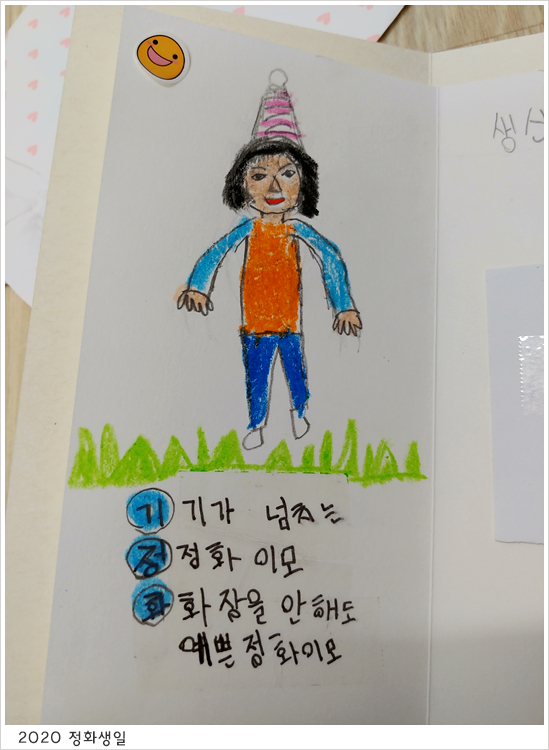 생
기 기가 넘치는
정 정화 이모
화 화장을 안해도
예쁜 정화이모
2020 정화생일